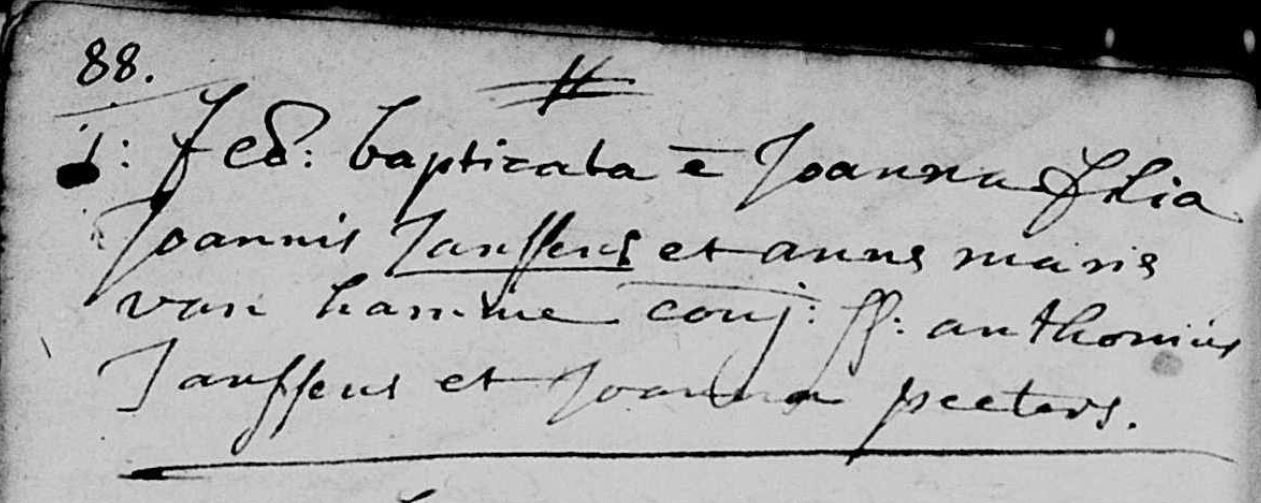 88.
1: feb: baptizata ē Joanna filia
Joannis Janssens et anne marie
van hamme conj: ss: anthonius
Janssens et Joanna peeters.